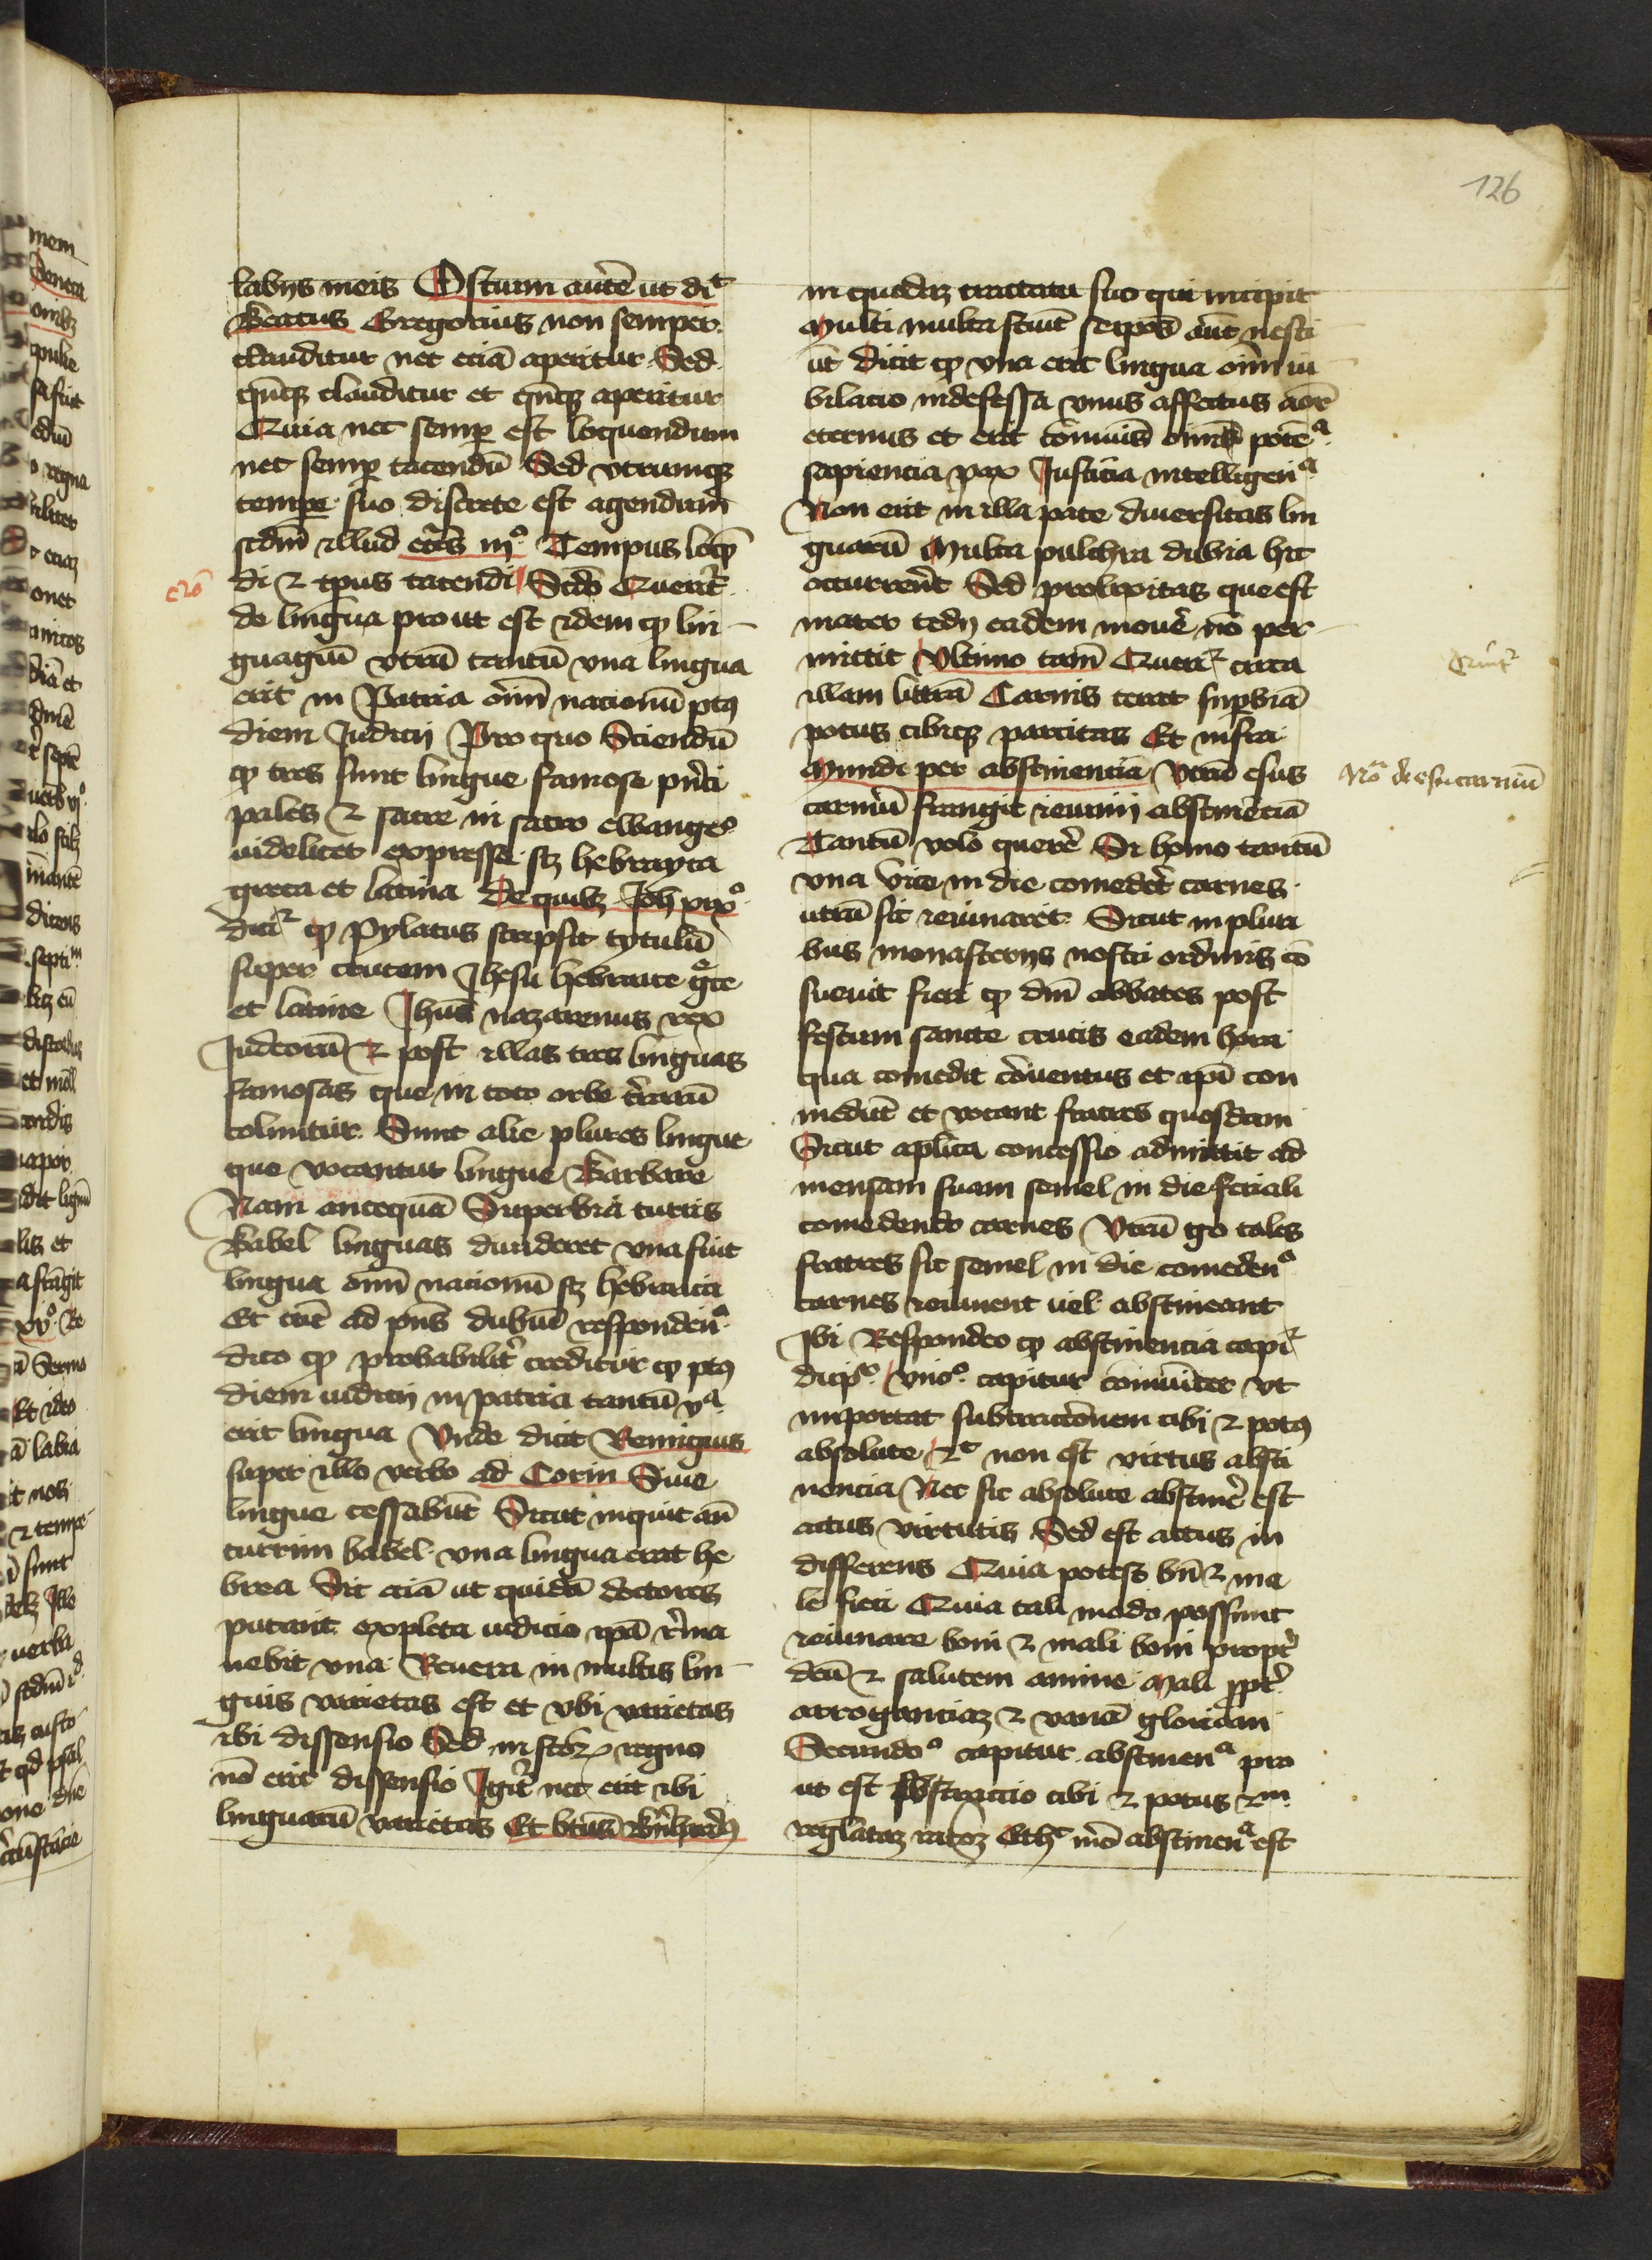 126
labijs meis Ostium autē ut dit
Beatus Gregorius non semper
clauditur nec eciā aperitur Sed
qn̄qꝫ clauditur et qn̄qꝫ aperitur
Quia nec semꝑ est loquendum
nec semꝑ tacendū Sed vtrumqꝫ
tempe suo discrete est agendum
scdm̄ illud eccs̄ iijº Tempus loqn̄
di ⁊ tpus tacendi Scdo Querit͛
de lingua prout est idem qꝫ lin
guagiū vtrū tantū vna lingua
erit in Patria oīm̄ nacionū ptꝰ
diem Iudicij Pro quo Sciendū
qꝫ tres sunt lingue famose pn̄ci
pales ⁊ sacre in sacro ewangeº
videlicet expresse sꝫ hebrayca
greca et latina De quibꝫ Ioh xixº
dicit͛ qꝫ Pylatus scripsit tytulū
super crucem Ihesu hebraice gᵉce
et latine Ihūs nazarenus rex
Iudeorū ⁊ post illas tres linguas
famosas que in toto orbe tr̄arū
colūntur Sunt alie plures lingue
que vocantur lingue Barbare
Nam antequā Superbia turris
Babel linguas diuideret vna fuit
lingua oīm̄ nacionū sꝫ hebraica
Et tūc ad pn̄s dubiū respondenᵃ
dico qꝫ probabilit͛ creditur qꝫ ptꝰ
diem iudicij in patria tantū vᵃ
erit lingua Vnde dicit Remigius
super illo verbo ad Corin Siue
lingue cessabūt Sicut inquit an̄
turrim babel vna lingua erat he
brea Sic eciā ut quidā doctores
putant expleta iudicio ipā r̄ma
nebit vna Reuera in multis lin
guis varietas est et vbi varietas
ibi dissensio Sed in scōꝝ regno
nō erit dissensio Igit͛ nec erit ibi
linguarū varietas Et btūs Bn̄hardꝰ
in quodaꝫ tractatu suo qui incipit
Multi multa sciūt nesci
ūt Dicit qꝫ vna erit lingua oīm̄ iu
bilacio indefessa vnus affectus
eternus et erit cōmūis potēᵃ
sapiencia pax Iusticia intelligenᵃ
Non erit in illa pace diuersitas lin
guarū Multa pulchra dubia hic
occurrent Sed prolixitas que est
mater tedij eadem mouē͛ nō per
mittit Vltimo tam̄ Querit͛ circa
illam litrā Carnis terat suꝑbiā
potus cibiqꝫ parcitas Et infra
Mundi per abstinentiā Vtrū esus
carniū frangit ieiunij abstinēciā
Tantū volo querē͛ Si homo tantū
vna vice in die comedet carnes
utrū sic ieiunaret Sicut in pluri
bus monasterijs nostri ordinis cō
sueuit fieri qꝫ dn̄i abbates post
festum sancte crucis eadem hora
qua comedit cōuentus et ipī com
medūt et vocant fratres quosdam
Sicut aplica concessio admittit ad
mensam suam semel in die feriali
comedendo carnes Vtrū ḡo tales
fratres sic semel in die comedenº
carnes ieiunent uel abstineant
Ibi Respondeo qꝫ abstinencia capit͛
dupꝲ Vnoº capitur cōmūiter vt
importat subtractōnem cibi ⁊ potꝰ
absolute ⁊ᶜ non est virtus absti
nencia Nec sic absolute abstinē͛ est
actus virtutis Sed est actus in
differens Quia potest bn̄ ⁊ ma
le fieri Quia tali modo possunt
ieiunare boni ⁊ mali boni propt͛
deū ⁊ salutem anime Mali ꝓpt͛
arroganciaꝫ ⁊ vanā gloriam
Secundoº capitur abstinenᵃ pro
ut est subtraccio cibi ⁊ potus
reglataꝫ mō abstinenᵃ est
Nōᵃ de esu carniū